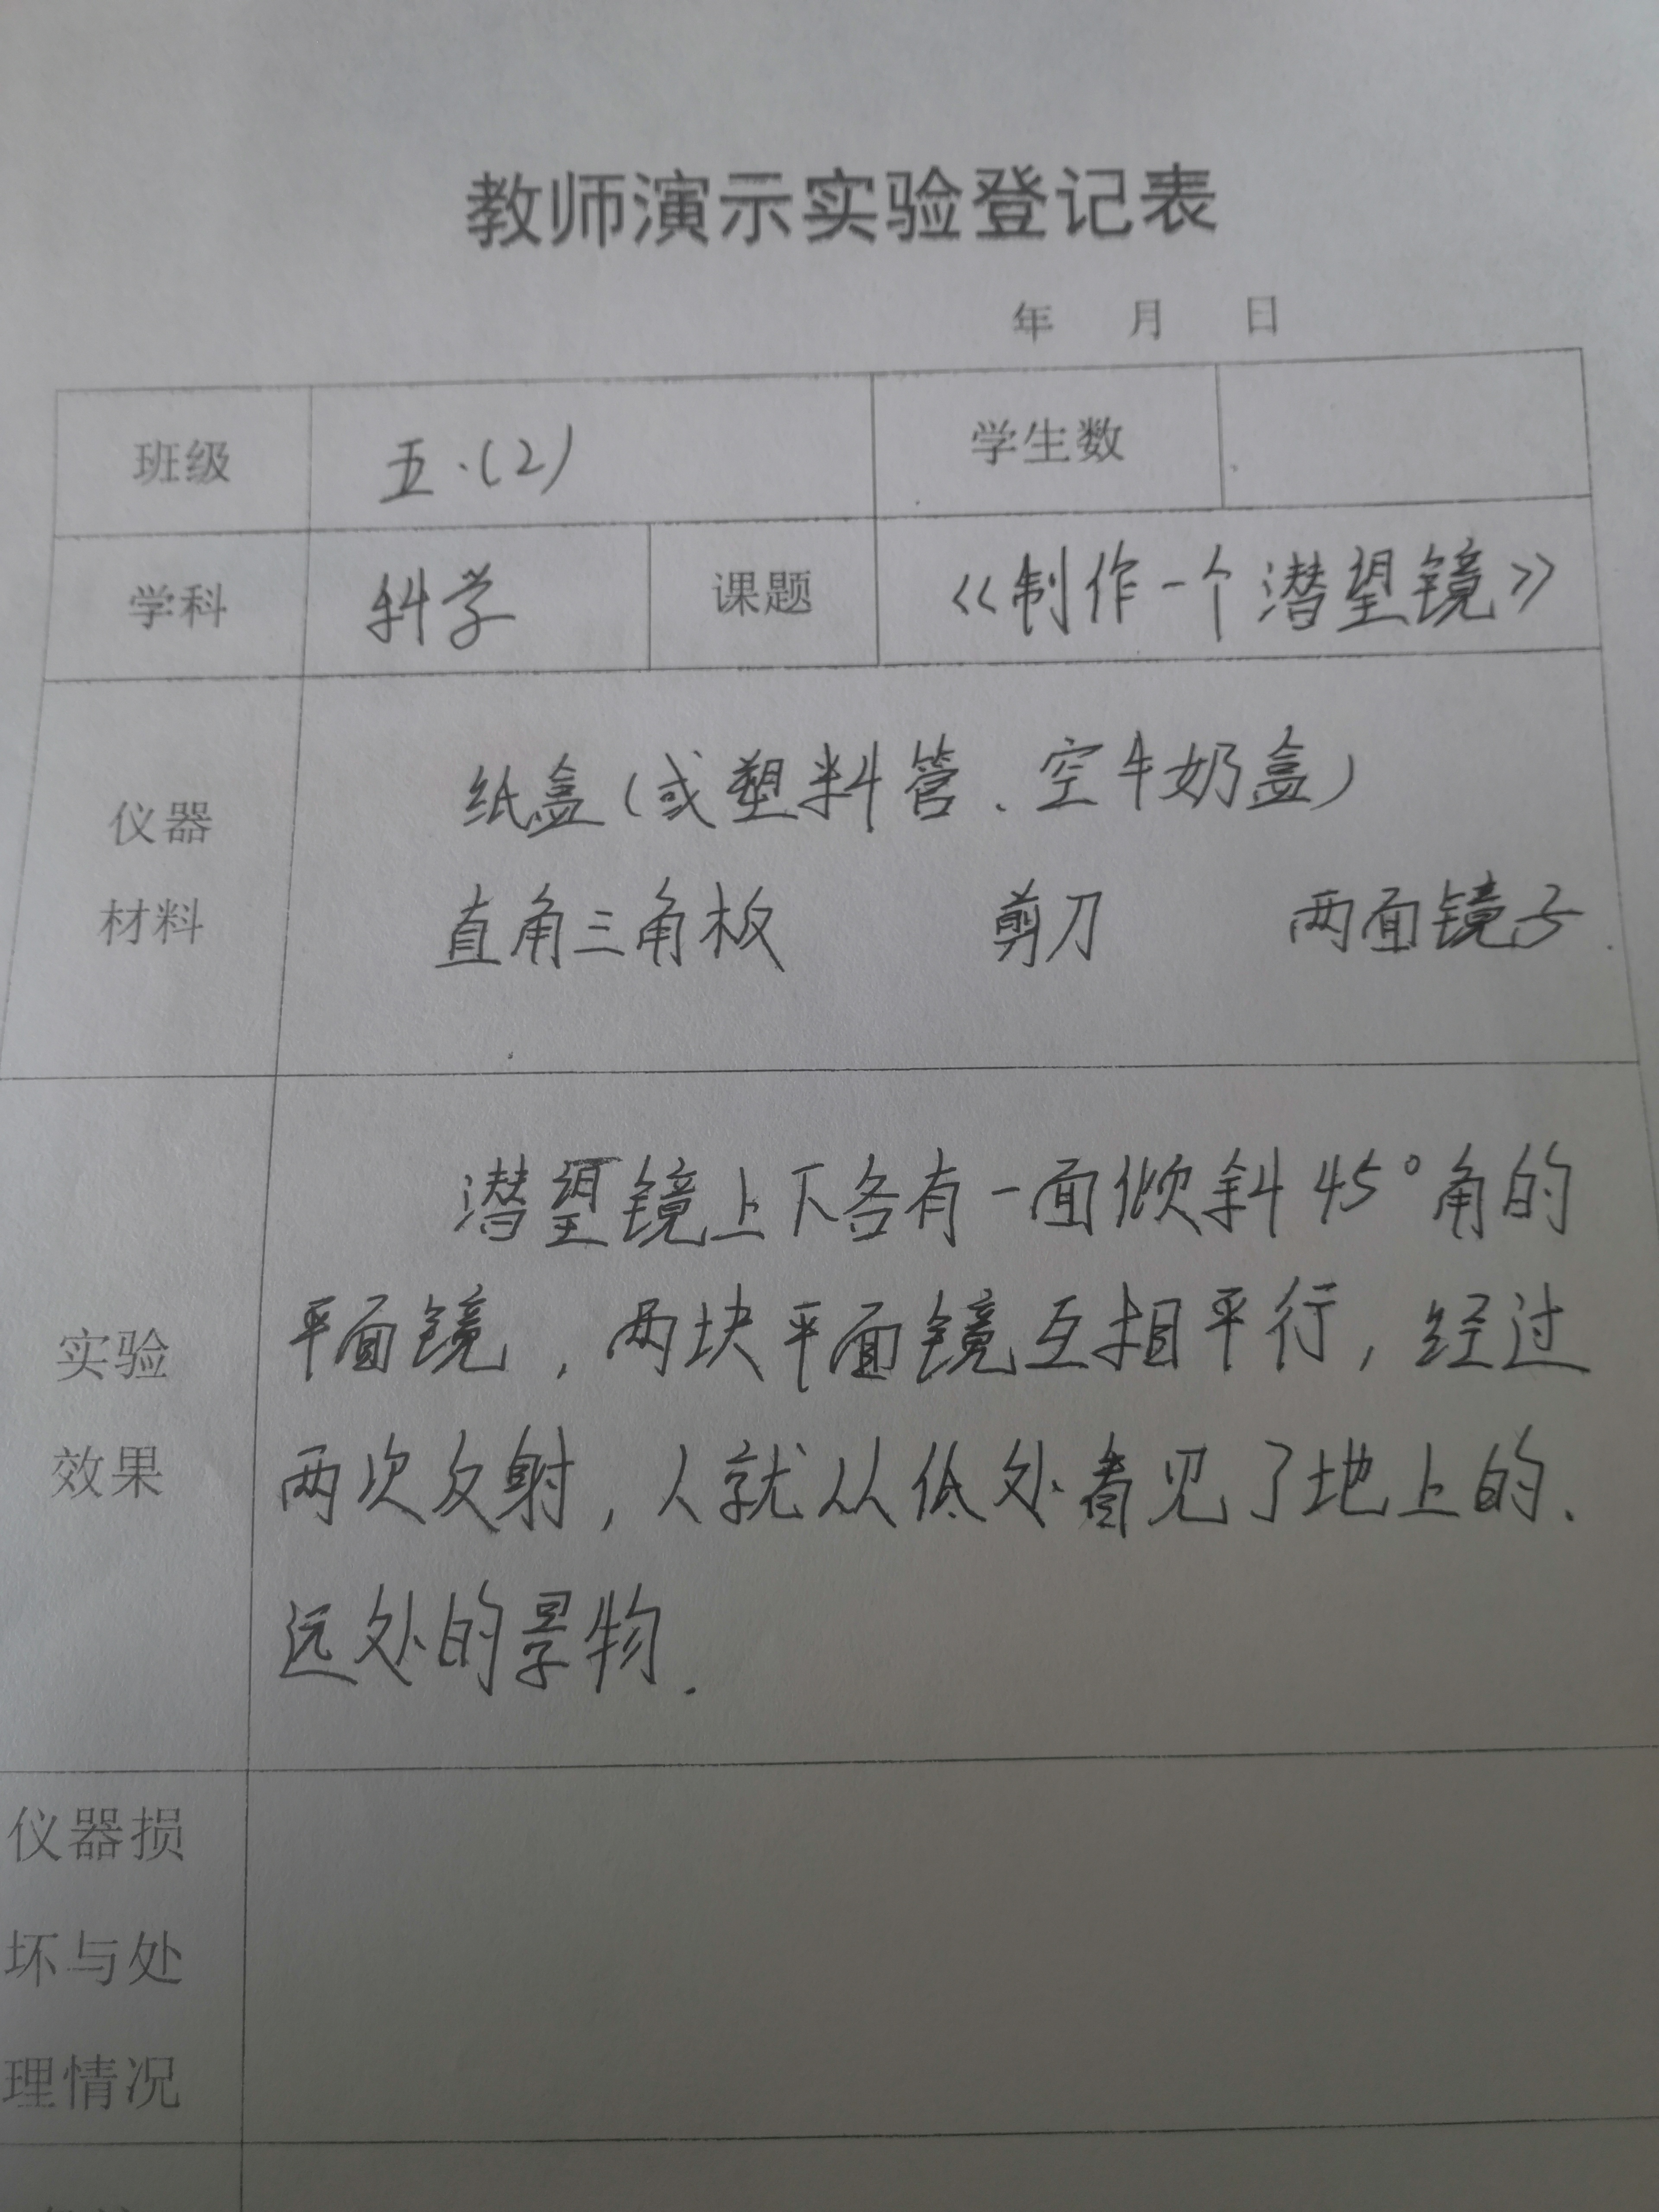 教师演示实验登记表
年 月 日
班级 五.(2) 学生数
学科 科学 课题 《制作一个潜望镜》
仪器
材料
纸盒(或塑料管、空牛奶盒)
直角三角板 剪刀 两面镜子.
实验
效果
潜望镜上下各有一面倾斜45°角的
平面镜,两块平面镜互相平行,经过
两次反射,人就从低处看见了地上的、
远处的景物.
仪器损
坏与处
理情况